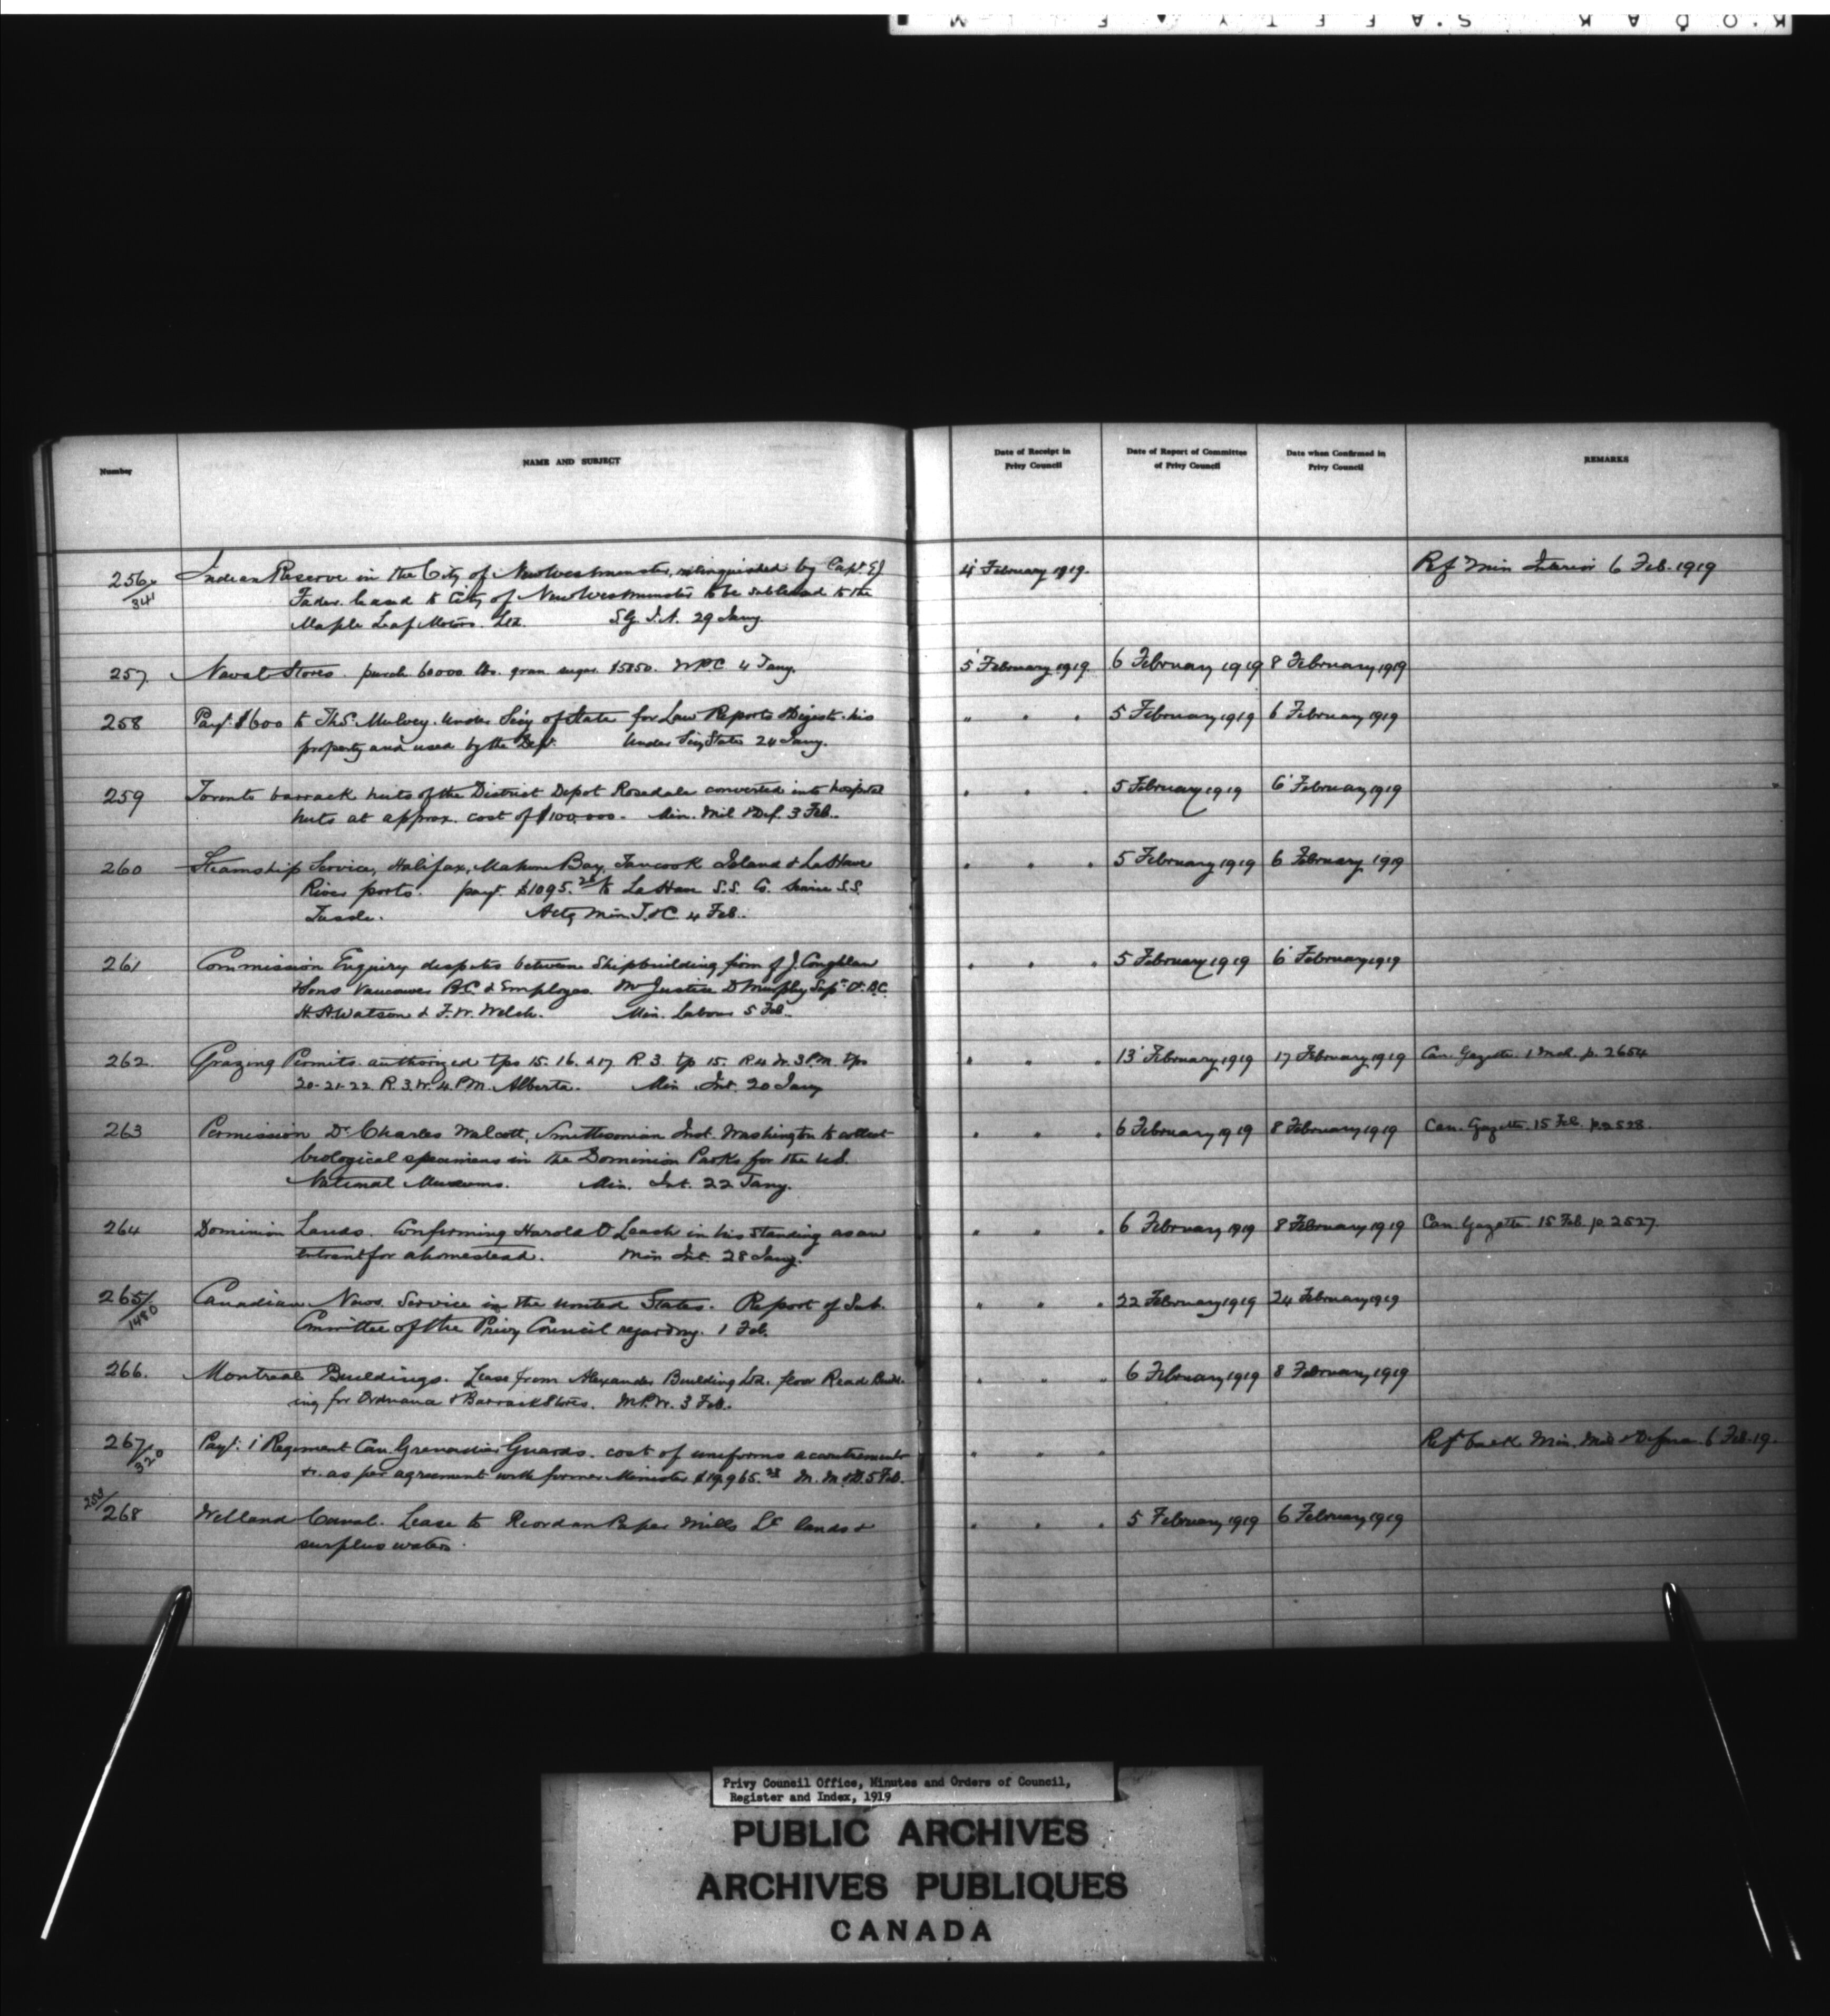 KODAK SAFETY FILM
Number
NAME AND SUBJECT
Date of Receipt in
Privy Council
Date of Report of Committee
of Privy Council
Date when Confirmed in
Privy Council
REMARKS
256 / 341 Indian Reserve in the City of New Westminster, relinquished by Capt. E.J. 4 February 1919. Ref Min Interior 6 Feb. 1919
Fader. leased to City of New Westminster to be subleased to the
Maple Leaf Motors. Ltd. S.G. I.A. 29 Jany.
257. Naval Stores. purch. 60000 lbs. gran. sugar. $5850. W.P.C 4 Jany. 5 February 1919. 6 February 1919 8 February 1919
258 Payt. $600 to Thos. Mulvey. Under Secy of State for Law Reports & Digests. his " " " 5 February 1919 6 February 1919
property and used by the Dept. Under Secy State 24 Jany.
259 Toronto barrack huts of the District Depot Rosedale converted into hospital " " " 5 February 1919 6 February 1919
huts at approx. cost of $100,000. Min. Mil & Def. 3 Feb.
260 Steamship Service, Halifax, Mahone Bay, Tancook Island & LaHave " " " 5 February 1919 6 February 1919
River ports. payt. $1095.25 to La Have S.S. Co. Service S.S.
Actg Min. T. & C. 4 Feb.
261 Commission Enquiry disputes between Shipbuilding firm of J. Coughlan " " " 5 February 1919 6 February 1919
& Sons Vancouver B.C. & Employees. Mr Justice D Murphy Sup. Ct. B.C.
H. A. Watson & F. W. Welsh. Min. Labour 5 Feb.
262. Grazing Permits. authorized tps 15. 16. & 17 R 3 tp 15. R 4 W. 3 P.M. tps " " " 13 February 1919 17 February 1919 Can. Gazette. 1 Mch. p. 2654
20-21-22 R. 3. W. 4. P.M. Alberta. Min Int. 20 Jany
263 Permission Dr Charles Walcott, Smithsonian Inst. Washington to collect " " " 6 February 1919 8 February 1919 Can. Gazette. 15 Feb. p. 2528.
biological specimens in the Dominion Parks for the U.S.
National Museums. Min. Int. 22 Jany.
264 Dominion Lands. Confirming Harold O Leach in his standing as an " " " 6 February 1919 8 February 1919 Can. Gazette. 15 Feb. p. 2527.
entrant for a homestead. Min Int. 28 Jany.
265 / 1480 Canadian News. Service in the United States. Report of Sub. " " " 22 February 1919 24 February 1919
Cmmittee of the Privy Council regarding. 1 Feb.
266. Montreal Buildings. Lease from Alexander Building Ltd. floor Read Build- " " " 6 February 1919 8 February 1919
ing for Ordnance & Barrack Stores. M.P.W. 3 Feb.
267 / 320 Payt. 1 Regiment Can. Grenadier Guards. cost of uniforms accoutrements " " " Ref back Min. Mil & Defence 6 Feb. 19.
&c. as per agreement with former Minister $19,965.23 M. M. & D. 5 Feb.
253 / 268 Welland Canal. Lease to Riordan Paper Mills Ld lands & " " " 5 February 1919 6 February 1919
surplus water.
Privy Council Office, Minutes and Orders of Council,
Register and Index, 1919
PUBLIC ARCHIVES
ARCHIVES PUBLIQUES
CANADA